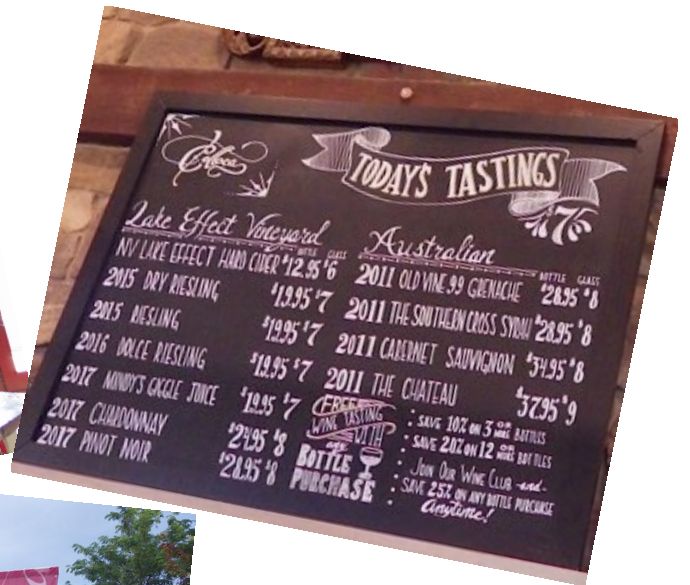 Coloca
TODAY'S TASTINGS
$7
Lake Effect Vineyard
BOTTLE GLASS
NV LAKE EFFECT HARD CIDER $12.95 $6
2015 DRY RIESLING $19.95 $7
2015 RIESLING $19.95 $7
2016 DOLCE RIESLING $19.95 $7
2017 MINDY'S GIGGLE JUICE $19.95 $7
2017 CHARDONNAY $24.95 $8
2017 PINOT NOIR $28.95 $8
Australian
BOTTLE GLASS
2011 OLD VINE 99 GRENACHE $28.95 $8
2011 THE SOUTHERN CROSS SYRAH $28.95 $8
2011 CABERNET SAUVIGNON $34.95 $8
2011 THE CHATEAU $37.95 $9
FREE
WINE TASTING
WITH
any
BOTTLE
PURCHASE
: SAVE 10% ON 3 OR MORE BOTTLES
: SAVE 20% ON 12 OR MORE BOTTLES
: JOIN OUR WINE CLUB and
SAVE 25% ON ANY BOTTLE PURCHASE
Anytime!